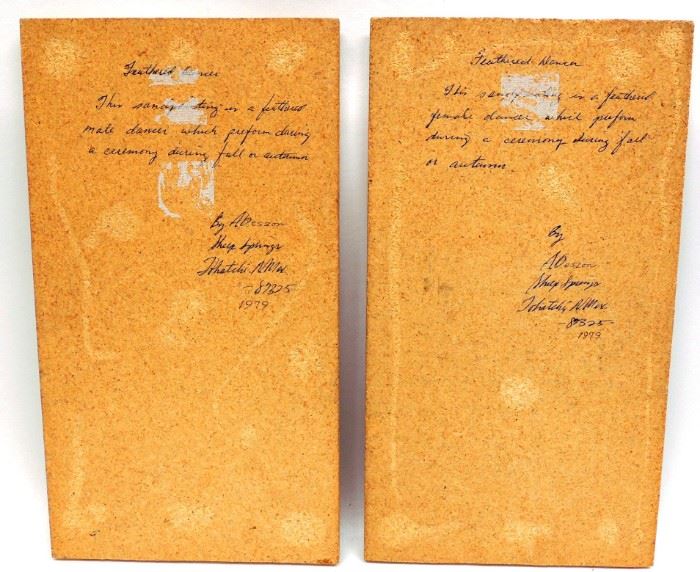 Feathered Dancer
This sandpainting is a feathered
male dancer which preform during
a ceremony during fall or autumn
By
Sheep Springs
Tohatchi N.Mex.
87325
1979
Feathered Dancer
This sandpainting is a feathered
female dancer which preform
during a ceremony during fall
or autumn.
By
Sheep Springs
Tohatchi N.Mex
87325
1979